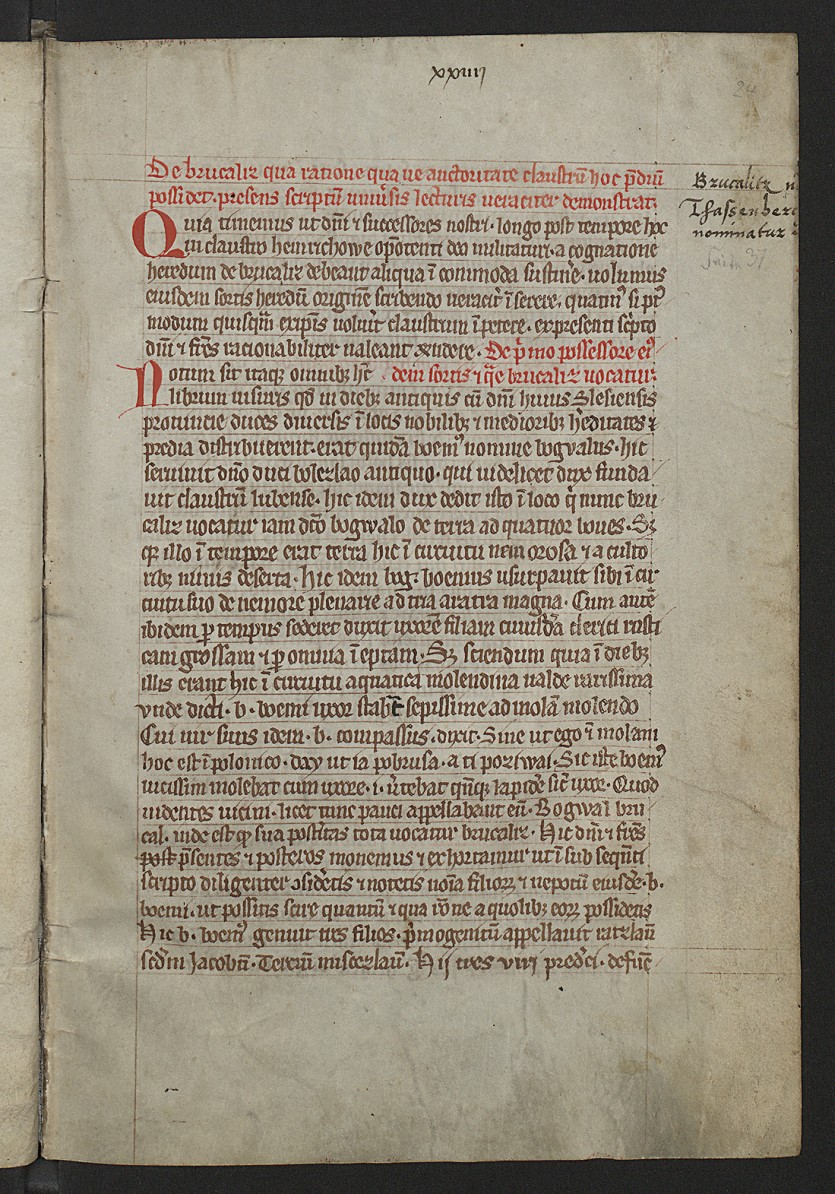 xxiiii
24
De brucaliz qua ratione qua ue auctoritate claustrū hoc p̄diū
possidet. presens scriptū uniūsis lecturis ueraciter demonstrat.
Brucalitz
Thassenberc
nominatur
Quia timemus ut dn̄i ⁊ successores nostri. longo post tempore hoc
in claustro heinrichowe op̄otenti deo militaturi. a cognatione
heredum de brucaliz debeant aliqua ī commoda sustin̄e. uolumus
eiusdem sortis heredū origin̄e scribendo ueracit̄ ī serere.
modum quisq̄m exip̄is uolūit claustrum ī petere. ex presenti sc̄pto
dn̄i ⁊ fr̄es racionabiliter ualeant r̄ndere. De p̄mo possessore ei᷒
Notum sit itaq; omnib; hc̄ dem sortis ⁊ q̄re brucaliz uocatur.
librum uisuris qd̄ in dieb; antiquis cū dn̄i huius Slesiensis
prouincie duces diuersis ī locis nobilib; ⁊ mediorib; h̄editates ⁊
predia distribuerent. erat quidā boem᷒ nomine bogvalus. hic
seruiuit dn̄o duci bolezlao antiquo. qui uidelicet dux funda
uit claustrū lubense. hic idem dux dedit isto ī loco q̄ nunc bru
caliz uocatur iam dc̄o bogwalo de terra ad quatuor boues. S;
qꝫ illo ī tempore erat terra hic ī circuitu nemorosa ⁊ a culto
rib; nimis deserta. Hic idem bog. boemus usurpauit sibi ī cir
cuitu suo de nemore plenarie ad tria aratra magna. Cum autē
ibidem ꝑ tempus sederet duxit uxorē filiam cuiusdā clerici rusti
cam grossam ⁊ ꝑ omnia ī eptam. S; sciendum quia ī dieb;
illis erant hic ī circuitu aquatica molendina ualde rarissima
vnde dicti. b. boemi uxor stabat sepissime ad molā molendo
Cui uir suus idem. b. compassus. dixit. Sine ut ego ī molam
hoc est ī polonico. day ut ia pobrusa. a ti poziwai. Sic iste boem᷒
uicissim molebat cum uxore. ⁊. ūtebat q̄nq; lapidē sic̄ uxor. Quod
uidentes uicini. licet tunc pauci appellabant eū. Bogwal bru
cal. inde est qꝫ sua post̄itas tota uocatur brucaliz. Hic dn̄i ⁊ fr̄es
post p̄sentes ⁊ posteros monemus ⁊ exhortamur ut ī sub seq̄nti
scripto diligenter ↄsid̄etis ⁊ notetis noīa filioꝝ ⁊ nepotū eiusdē. b.
boemi. ut possitis scire quantū ⁊ qua rōne a quolib; eoꝝ possideatis
Hic b. boem᷒ genuit tres filios. p̄mogenitū appellauit raczlaū
sed̄m Jacobū. Terciū misceczlaū. Hij tres viri predc̄i. defūc̄